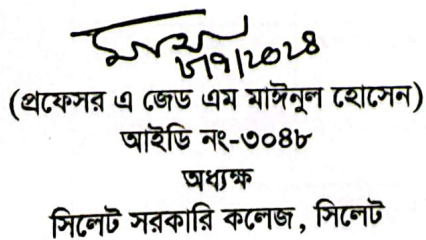 ৮/৭/২০২৪
(প্রফেসর এ জেড এম মাঈনুল হোসেন)
আইডি নং-৩০৪৮
অধ্যক্ষ
সিলেট সরকারি কলেজ, সিলেট